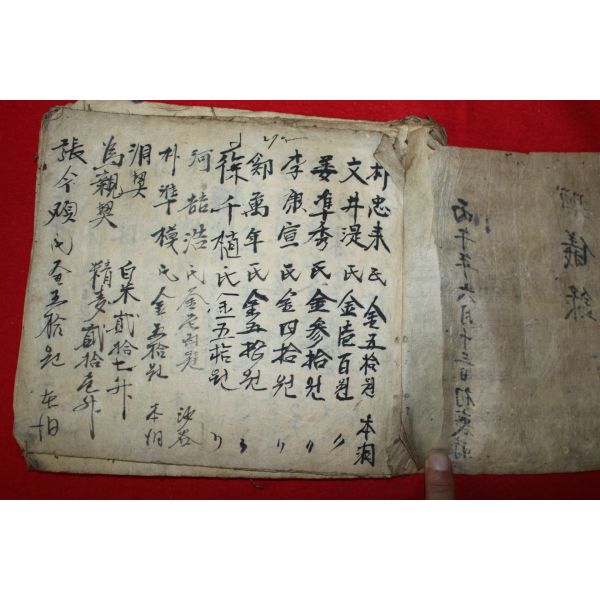 朴忠来氏金五拾원 本洞
文井湜氏金壹百원 〃
姜準秀氏金參拾원 〃
李康宣氏金四拾원 〃
鄭萬年氏金五拾원 〃
徐千植氏金五拾원 〃
河喆浩氏金 沙谷
朴準模氏金五拾원 本洞
洞契 白米貳拾七升
爲親契 精麥貳拾壱升
張今順氏金五拾원 本洞
儀錄
丙午年六月十三日